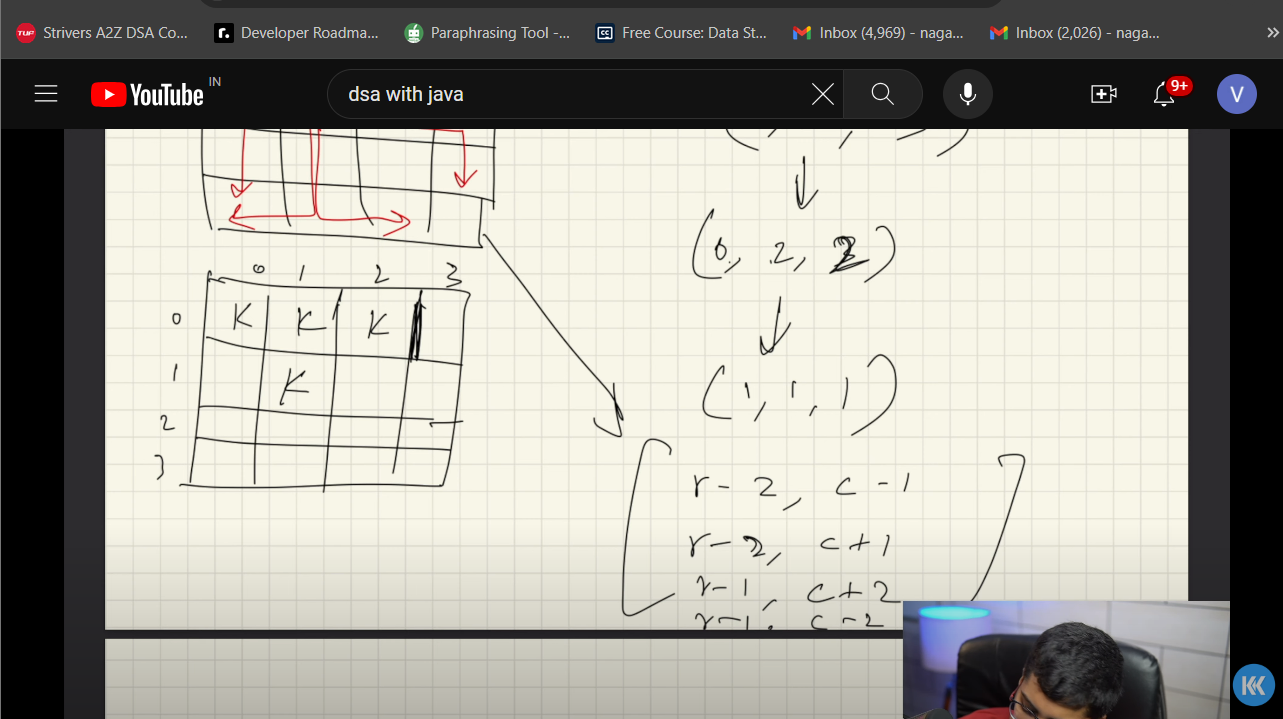 TUF Strivers A2Z DSA Co... r. Developer Roadma... Paraphrasing Tool -... CC Free Course: Data St... Inbox (4,969) - naga... Inbox (2,026) - naga... »
YouTube IN dsa with java 9+ V
(0, 2, 2)
0 1 2 3
0 K K K
1 K
2
3
(1, 1, 1)
r - 2, c - 1
r - 2, c + 1
r - 1, c + 2
r - 1, c - 2
KK